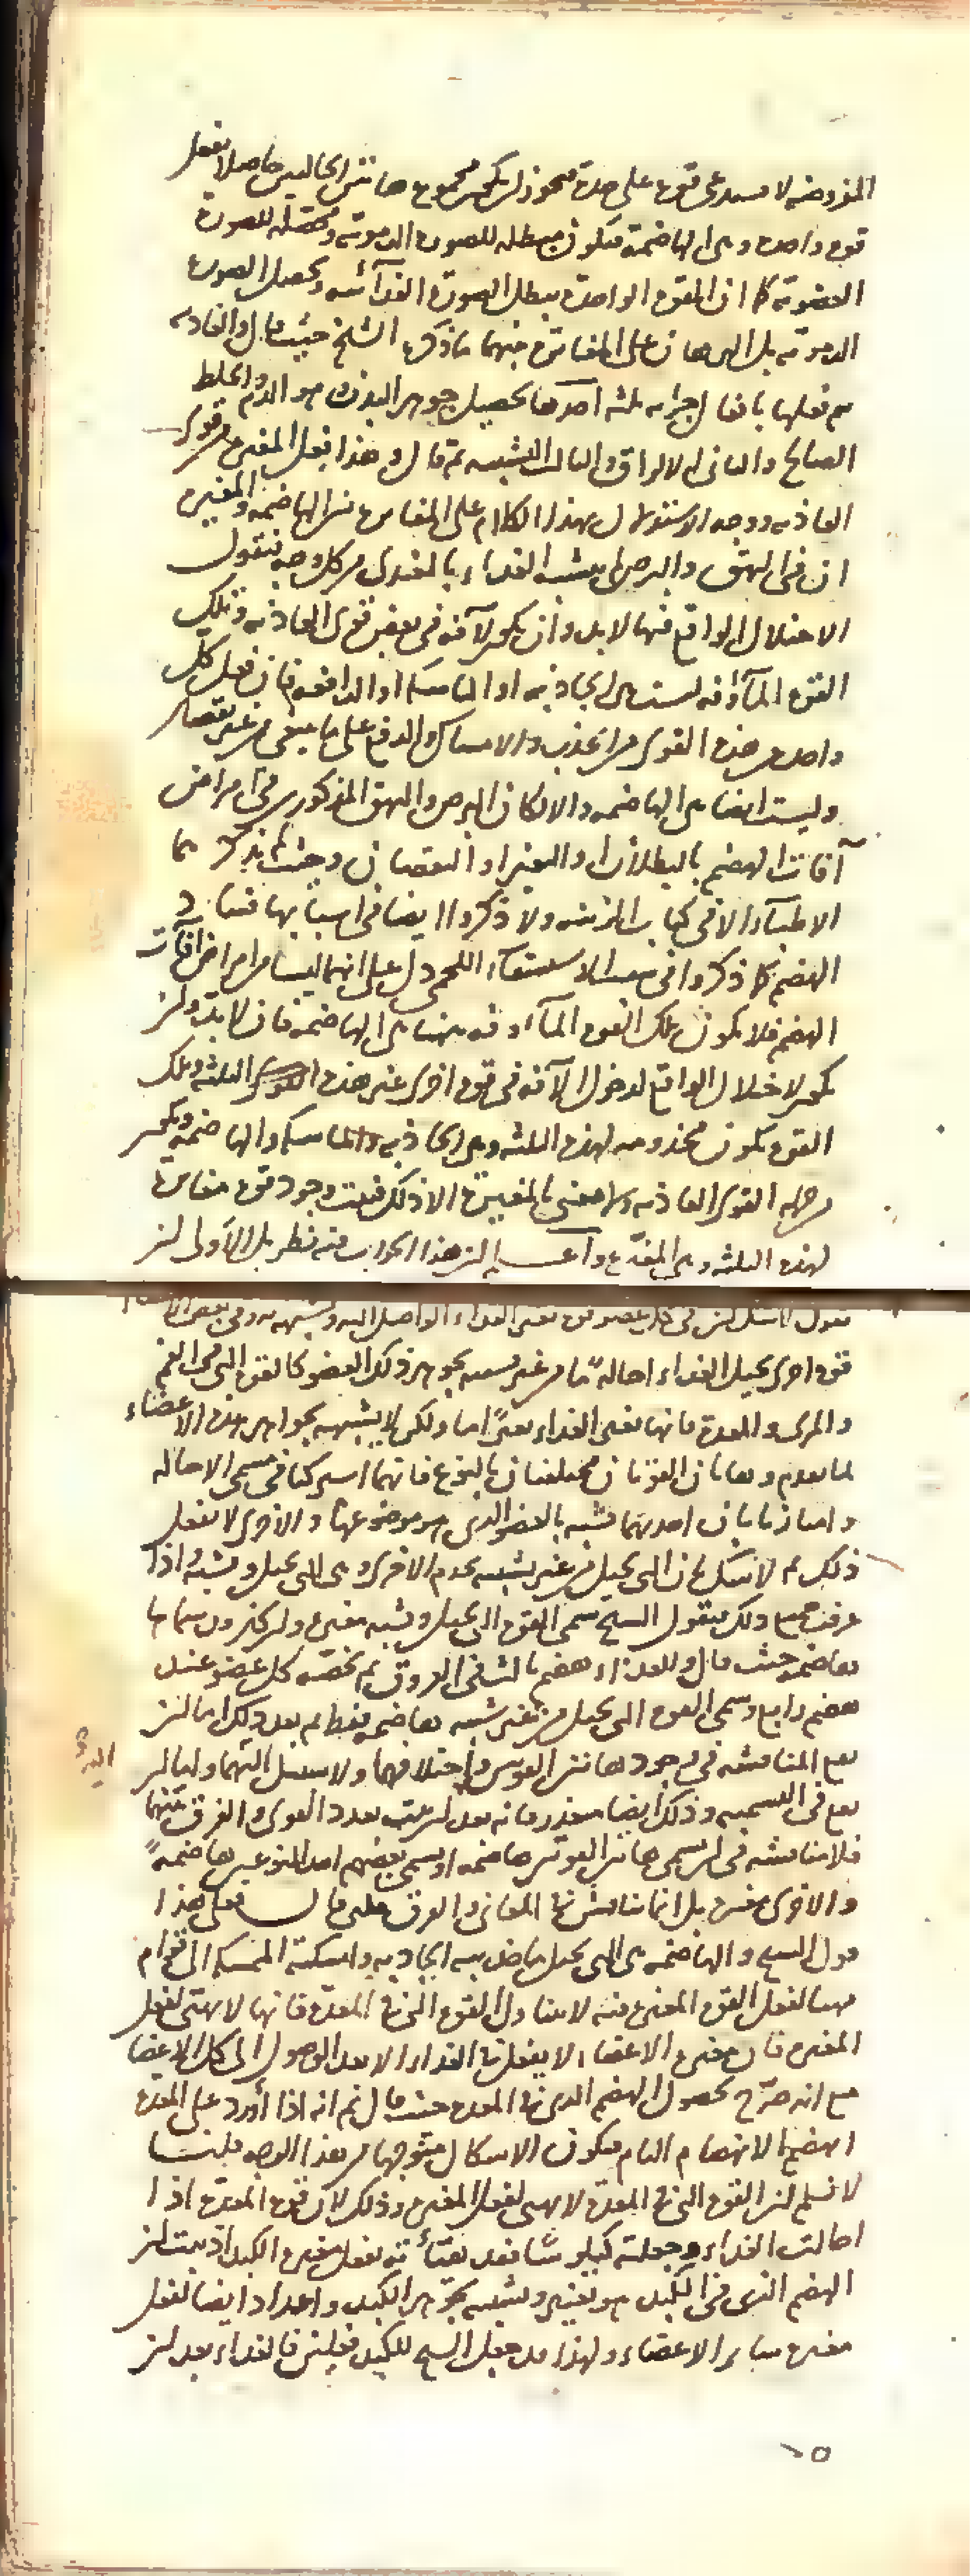 المفروضة لا يستدعي قوة على حدة فيجوز ان يكون مجموع هاتين الحالتين حاصلا بفعل
قوة واحدة وهي الهاضمة فيكون مبطلة للصورة الدموية ومحصلة للصورة
العضوية كما ان القوة الواحدة يبطل الصورة الغذائية ويحصل الصورة
الدموية بل البرهان على المغايرة بينهما ما ذكره الشيخ حيث قال والغاذية
يتم فعلها بافعال جزئية ثلثة احدها تحصيل جوهر البدن وهو الدم والخلط
الصالح والثاني الالزاق والثالث التشبيه ثم قال وهذا بفعل المغيرة من قوى
الغاذية ووجه الاستدلال بهذا الكلام على المغايرة بين الهاضمة والمغيرة
ان في البهق والبرص لم يشبه الغذاء بالمغتذي من كل وجه فنقول
الاختلال الواقع فيها لا بد وان يكون لآفة في بعض قوى الغاذية وتلك
القوة المأوفة ليست هي الجاذبة او الماسكة او الدافعة فان فعل كل
واحد من هذه القوى من الجذب والامساك والدفع على ما ينبغي من غير نقصان
وليست ايضا هي الهاضمة والا لكان البرص والبهق المذكورين في امراض
آفات الهضم بالبطلان او التغير او النقصان وحيث لم يذكرهما
الاطباء الا في كتاب الزينة ولا ذكروا ايضا في اسبابها فساد
الهضم كما ذكروا في سبب الاستسقاء اللحمي دل على انهما ليسا من امراض آفات
الهضم فلا يكون تلك القوة المأوفة ههنا هي الهاضمة فاذن لا بد وان
يكون الاختلال الواقع لدخول الآفة في قوة اخرى غير هذه الثلثة وتلك
القوة يكون مخدومة لهذه الثلثة وهي الجاذبة والماسكة والهاضمة ويكون
من جملة القوى الغاذية ولا معنى بالمغيرة الا ذلك فثبت وجود قوة مغايرة
لهذه الثلثة وهي المغيرة واعلم ان هذا الجواب فيه نظر بل الاولى ان
نقول لا شك ان في كل عضو قوة تغير الغذاء الواصل اليه وتشبهه به وفي بعض الاعضاء
قوة اخرى تحيل الغذاء احالة ما من غير تشبيه بجوهر ذلك العضو كالقوة التي في الفم
والمرى والمعدة فانها تغير الغذاء تغيرا ما ولكن لا يشبهه بجواهر هذه الاعضاء
لما تقدم وهاتان القوتان مختلفتان بالنوع فانهما اشتركتا في مسمى الاحالة
وامتازتا بان احديهما تشبه بالعضو الذي هو موضوعها والاخرى لا تفعل
ذلك ثم لا شك ان التي تحيل من غير تشبيه تخدم الاخرى وهي التي تحيل وتشبه واذا
عرفت جميع ذلك فنقول الشيخ سمى القوة التي تحيل وتشبه مغيرة وآخرون سماها
هاضمة حيث قال وللغذاء هضم ثالث في العروق ثم يخصه كل عضو عنده
هضم رابع وسمى القوة التي تحيل من غير تشبيه هاضمة فقط ثم بعد ذلك اما ان
يقع المناقشة في وجود هاتين القوتين واختلافهما ولا سبيل اليهما واما ان
يقع في التسمية وذلك ايضا متعذر فانه بعد ان يثبت تعدد القوى والفرق بينهما
فلا مناقشة في ان يسمى هاتين القوتين هاضمة او يسمى بعضهم احد النوعين هاضمة
والاخرى مغيرة بل انما يناقش في المعاني والفرق فان قال فعلى هذا
قول الشيخ والهاضمة هي التي تحيل ما جذبته الجاذبة وامسكته الممسكة الى قوام
مهيا لفعل القوة المغيرة فيه لا يتناول القوة التي في المعدة فانها لا تهيئ لفعل
المغيرة فان مغيرة الاعضاء لا يفعل في الغذاء الا بعد الوصول الى تلك الاعضاء
مع انه صرح بحصول الهضم الذي في المعدة حيث قال ثم انه اذا أورد على المعدة
انهضم الانهضام التام فيكون الاشكال متوجها من هذا الوجه قلنا
لا نسلم ان القوة التي في المعدة لا تهيئ لفعل المغيرة وذلك لان قوة المعدة اذا
احالت الغذاء وجعلته كيلوسا فقد هيأته لفعل مغيرة الكبد اذ ثبت ان
الهضم الذي في الكبد هو تغيير وتشبيه بجوهر الكبد واعداد ايضا لفعل
مغيرة سائر الاعضاء ولهذا قد جعل الشيخ للكبد فعلين فالغذاء بعد ان